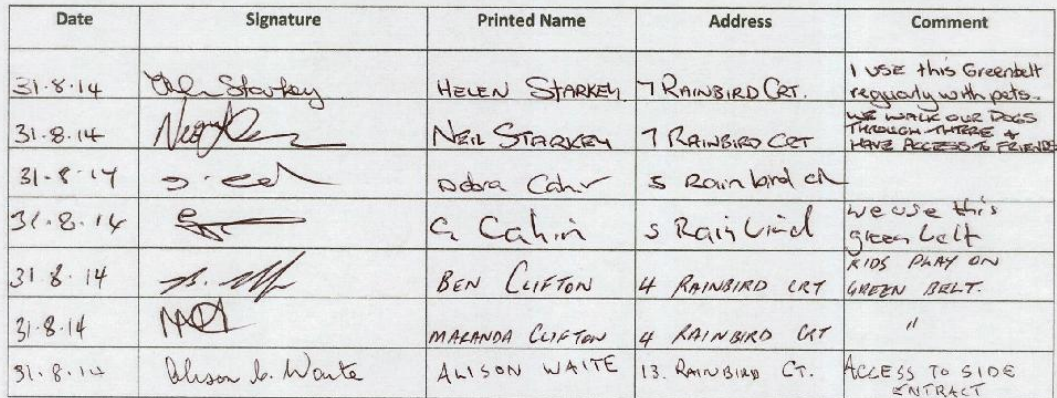 Date Signature Printed Name Address Comment
31.8.14 Starkey HELEN STARKEY. 7 RAINBIRD CRT. I USE this Greenbelt
reguarly with pets.
31.8.14 NEIL STARKEY 7 RAINBIRD CRT WE WALK OUR DOGS
THROUGH THERE &
HAVE ACCESS TO FRIENDS
31.8.14 Debra 5 Rainbird
31.8.14 G Cahin 5 Rainbird we use this
green belt
31.8.14 BEN CLIFTON 4 RAINBIRD CRT KIDS PLAY ON
GREEN BELT.
31.8.14 MARANDA CLIFTON 4 RAINBIRD CRT "
31.8.14 Alison b. Waite ALISON WAITE 13. RAINBIRD CT. ACCESS TO SIDE
ENTRACT